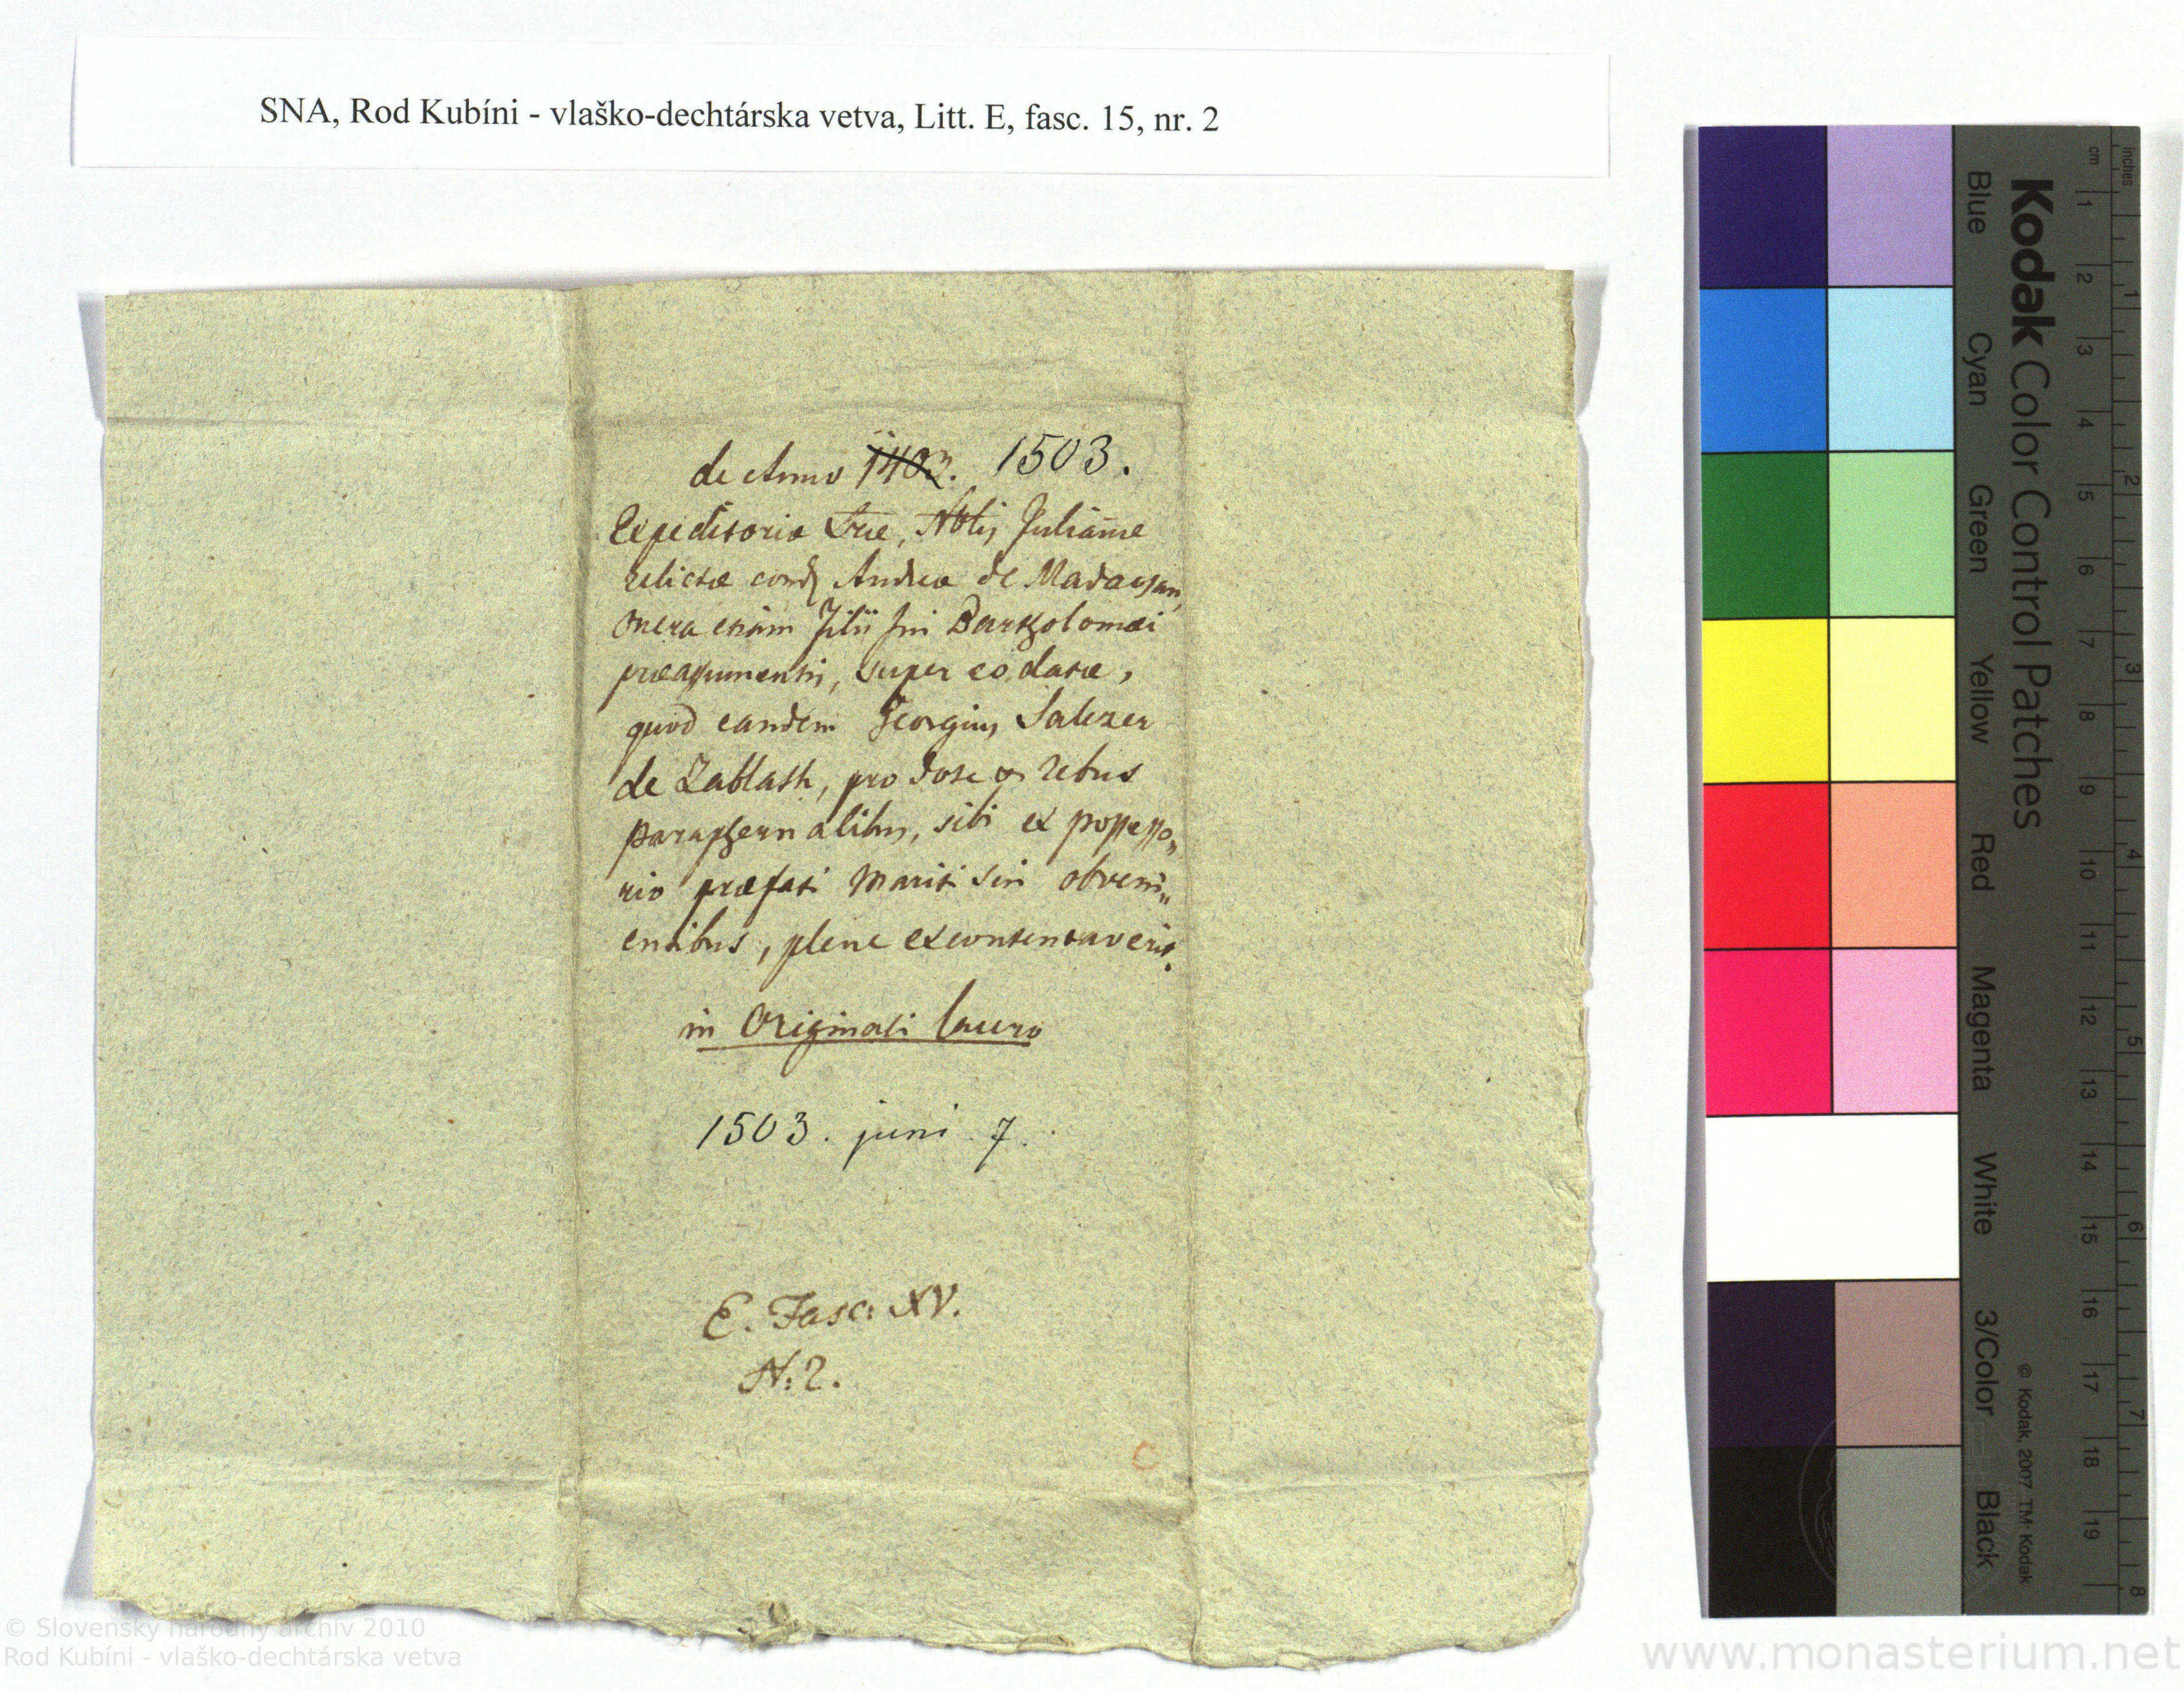 SNA, Rod Kubíni - vlaško-dechtárska vetva, Litt. E, fasc. 15, nr. 2
de Anno 1402. 1503.
Expeditoriæ Lræ, Nblis Juliannæ
relictæ cond Andreæ de Madacsan,
onera etiam filii sui Bartholomæi
præassumentis, super eo datæ,
quod eandem Georgius Salczer
de Zablath, pro dote et rebus
paraphernalibus, sibi ex possesso„
rio præfati Mariti sui obveni„
entibus, plene excontentaverit.
in Originali Lauro
1503. juni 7.
E. Fasc: XV.
N: 2.
C
Kodak Color Control Patches
Blue Cyan Green Yellow Red Magenta White 3/Color Black
© Kodak, 2007 TM: Kodak
inches 1 2 3 4 5 6 7 8
cm 1 2 3 4 5 6 7 8 9 10 11 12 13 14 15 16 17 18 19
© Slovenský národný archív 2010
Rod Kubíni - vlaško-dechtárska vetva
www.monasterium.net